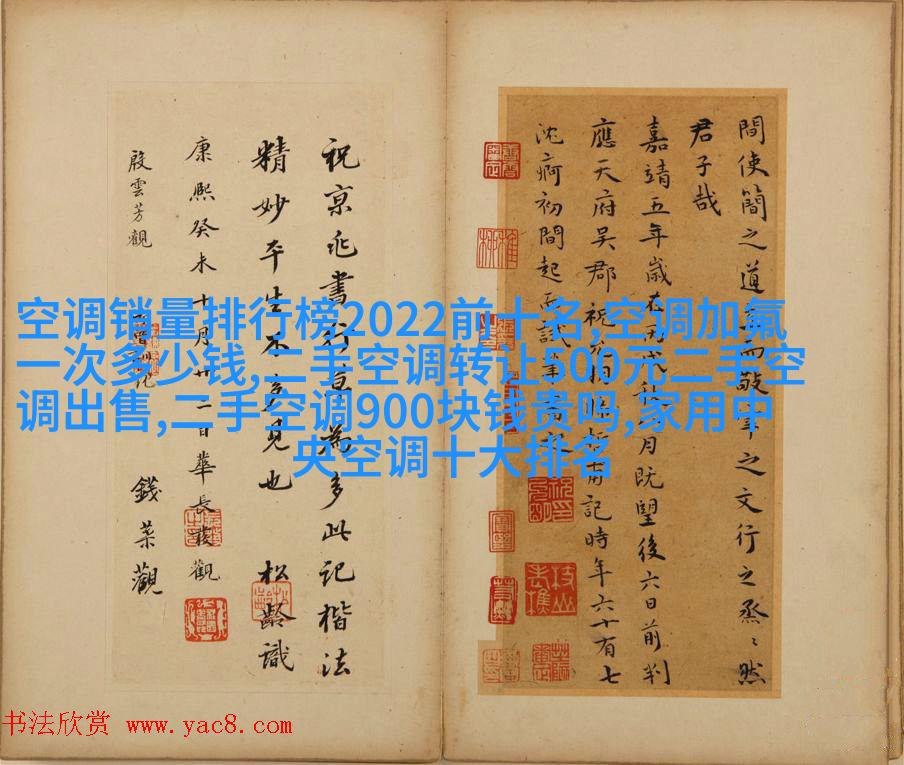 空调销量排行榜2022前十名,空调加氟
一次多少钱,二手空调转让500元二手空
调出售,二手空调900块钱贵吗,家用中
央空调十大排名
間使簡之道而敬之文行之烝〻然
君子哉
嘉靖五年歲在丙戌秋月既望後六日前判
應天府吳郡祝允明記時年六十有七
沈痾初間起試書
祝京兆書行草為多此記楷法
精妙平生不多見也 松齡識
康熙癸未十月廿二日華長發觀
殷雲芳觀
錢菜觀
书法欣赏 www.yac8.com